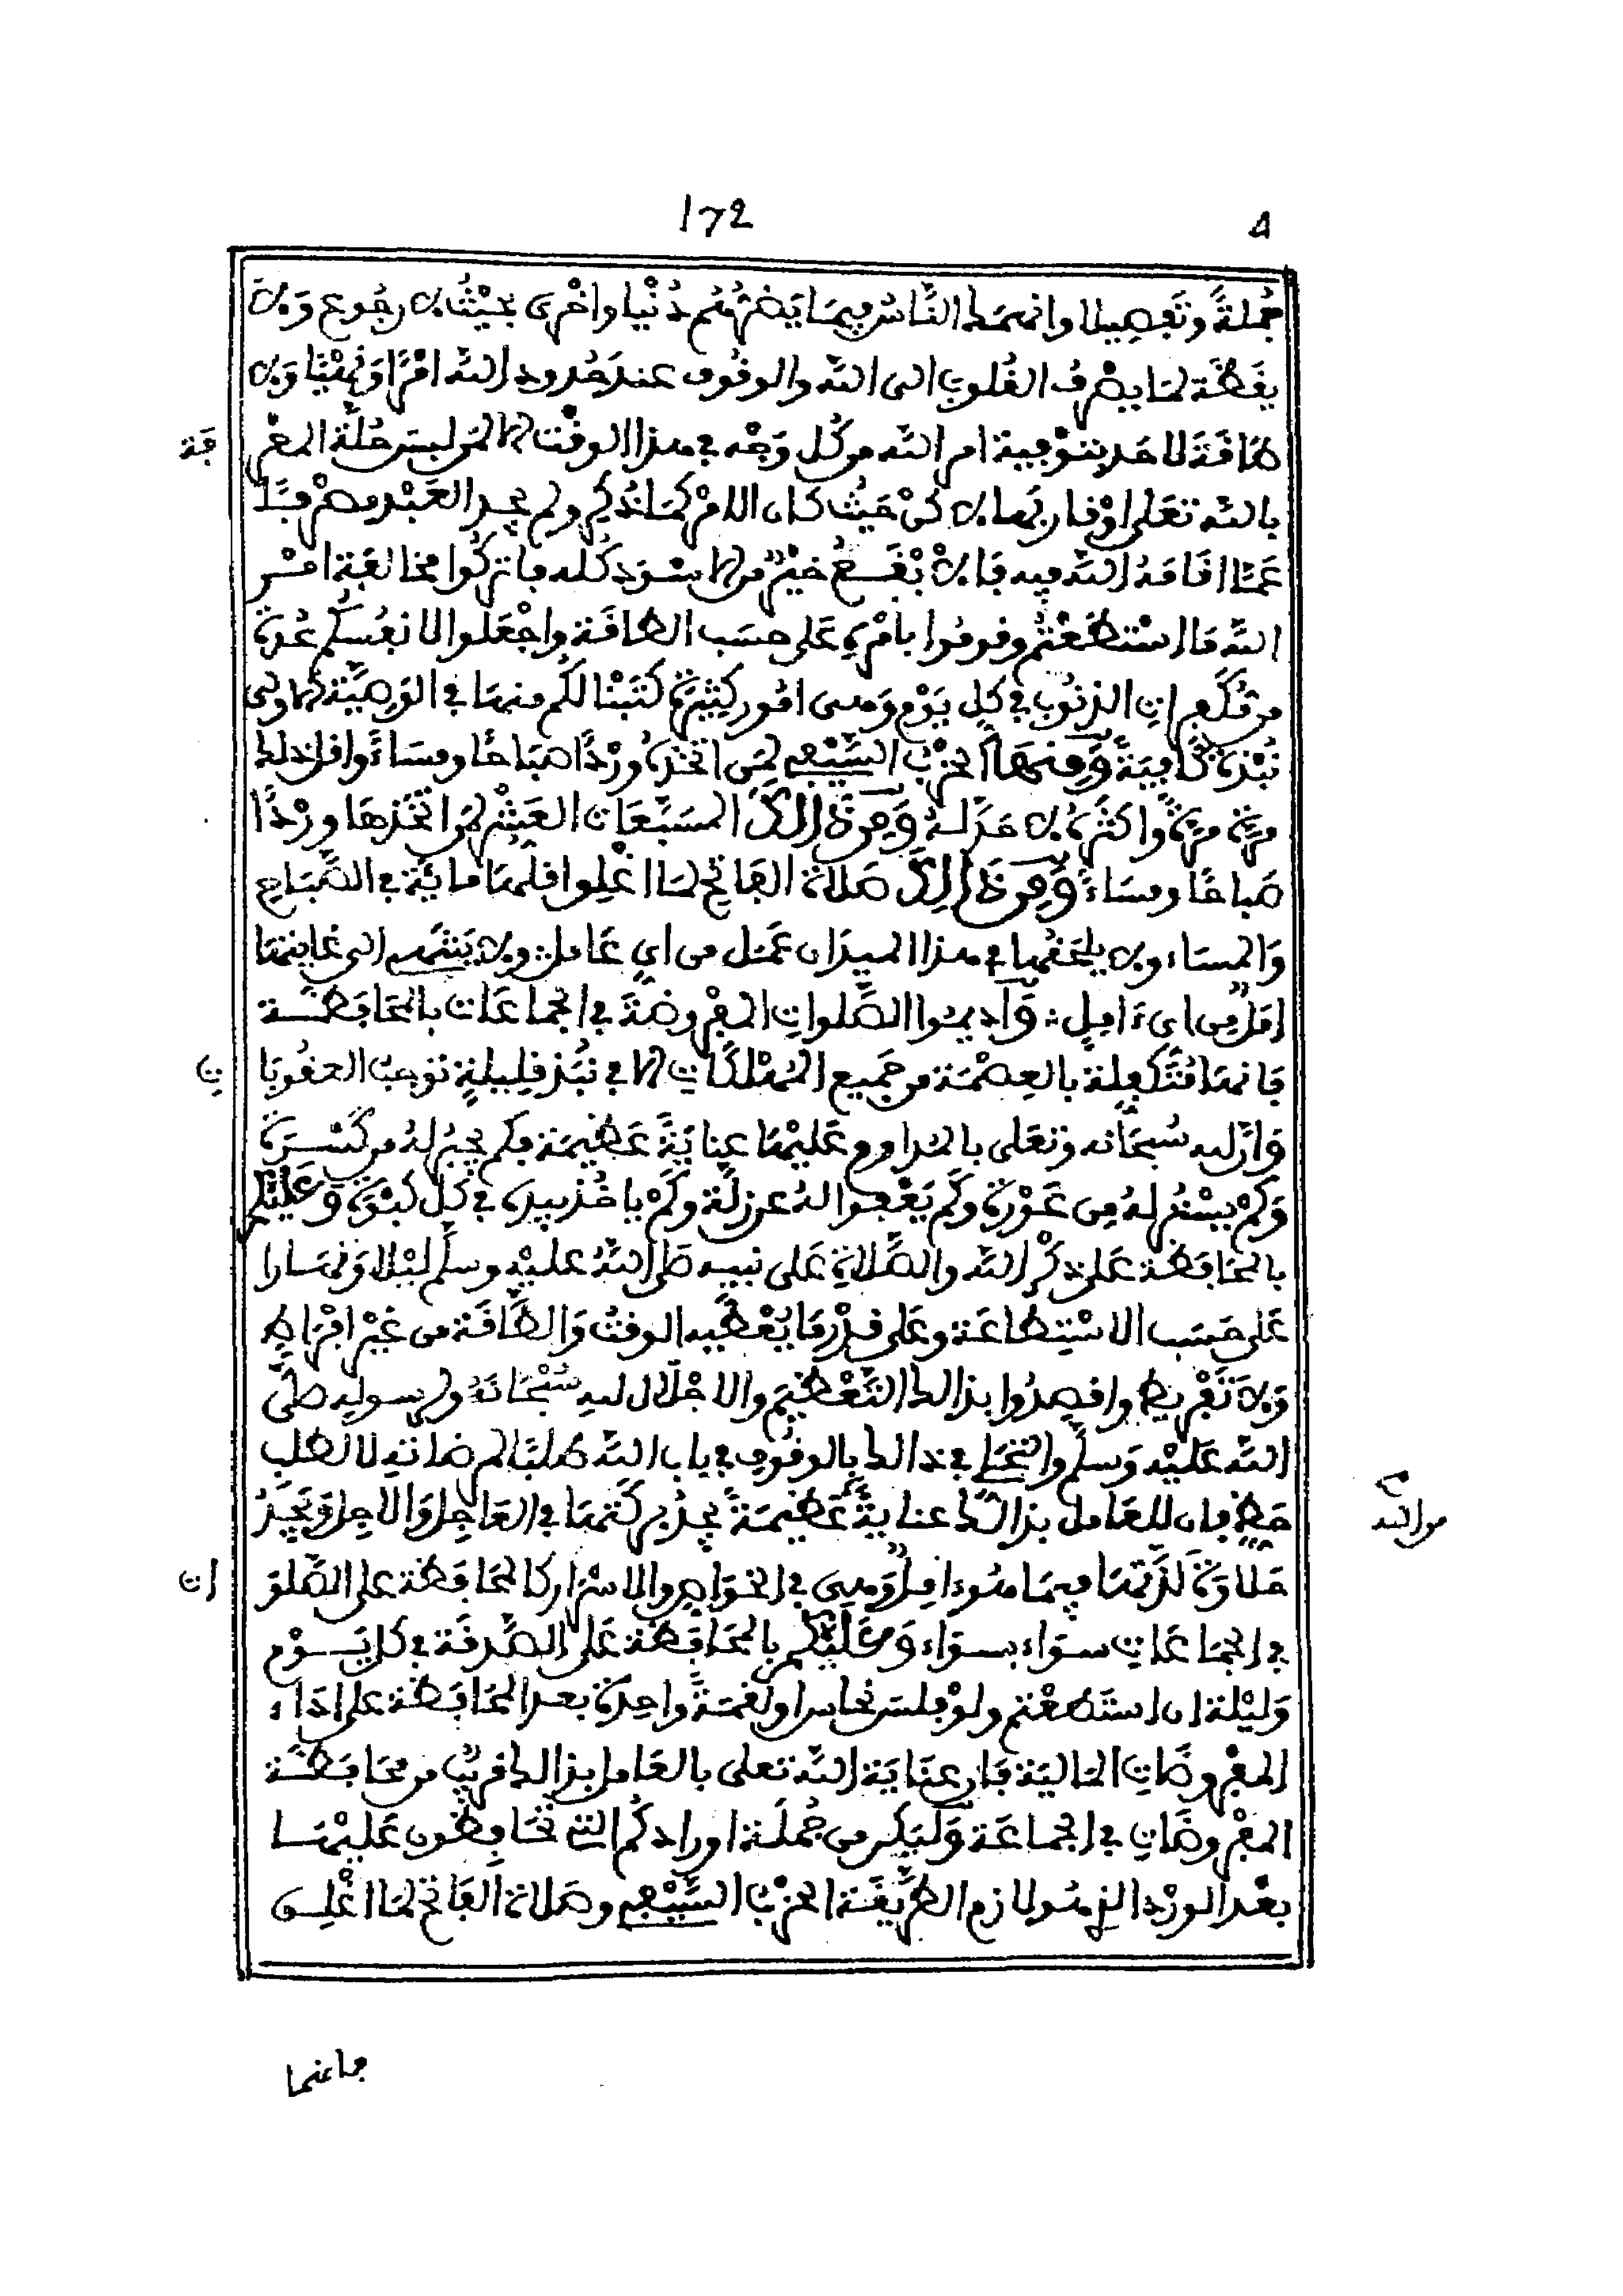 172
جُملةً وتَفصيلا وانهمط الناسُ فيما يَضرُّهُم دُنْيا واخْرى بحيْثُ لا رجُوع وَلا
يقَظَة لما يصْرِفُ القُلوبِ الى الله والوقُوف عندَ حُدود الله امْرًا ونَهْيًا وَلا
طَاقَةَ لاحَد بتوْفِية امر الله من كُل وَجْه في هذا الوقْت الا لمن لبسَ حُلَّة المعْرِ
فة
بالله تعَلى اوْ قاربَها لاكنْ حَيثُ كَان الامْرُ كمَا ذُكِر ولم يجد العَبْد مصْرِفًا
عَمَّا اقَامَهُ الله فيه فَالابْقَعُ خيْرٌ من الاسْوَد كُله فاتركُوا مخالفَة امْر
الله مَا اسْتطعْتُم وقومُوا بامْرِهِ عَلى حسَب الطاقَة واجْعَلوا لانفُسكُم عُدةً
من مُكَفِّراتِ الذنُوب في كل يَوْم وَهى امُور كثِيرَةٌ كتَبْنا لكُم منها في الوَصيَّة الاولى
نُبْذةً كَافيَةً وَمِنهَا الحزْبُ السَّيْفي لمن اتخذَهُ ورْدًا صَبَاحًا ومسَاءً واقل ذلك
مرة مرةً واكثرهُ لا حَدّ لهُ وَمِن ذَالِكَ المسَبِّعَات العَشْر لمن اتخَذهَا ورْدًا
صَباحًا ومسَاءً وَمِن ذَالِكَ صَلاة الفاتحِ لما اغْلِق واقلهَا مائَة في الصَّبَاحِ
وَالمسَاء ولا يلحَقهَا في هذا الميزان عَمَل من ايِ عَاملٍ ولا ينتَهى الى غايتهَا
امَلٌ من اي ءَامِلٍ : وَأديمُوا الصَّلواتِ المفْروضَةَ في الجماعَات بالمحَافَظَة
فانهَا مُتَكفِلة بالعِصْمَة من جَميع المُهْلكَاتِ الا في نُبَذٍ قلِيلةٍ توجبُ العقُوبَا
تِ
وَاِنَّ للهِ سُبحَانه وتعَلى بالمُداوم عَليْهَا عِنايَةً عَظيمَة فكَم يجبُرُ لهُ من كَسْرَةٍ
وَكمْ يسْتُر لهُ مِن عَوْرَةٍ وكَم يَعْفُوا لهُ عن زلَّة وكَمْ ياخُذ بيدِهِ في كُل كَبْوَةٍ وَعَليْكُم
بالمحَافظَة عَلى ذكْرِ الله والصَّلاةِ عَلى نبيهِ صَلى اللهُ عليْهِ وسلَّم ليْلا وَنهَارا
عَلى حَسَب الاسْتِطاعَة وعَلى قدْر مَا يُعْطيه الوقتُ وَالطَّاقَة من غيْر افْرَاطٍ
وَلا تَفْريط واقصِدُوا بذالك التَّعْظيم والاجْلال للهِ سُبْحَانَهُ ولرسولهِ صَلَّى
الله عَليْه وَسلَّم والتحَلي في ذالك بالوقُوفِ في باب الله طَلبًا لمرضاتهِ لا لطَلبِ
حَظٍّ فان للعَامل بذالك عنايةً عَظيمَةً يجدُ بركَتهَا في العَاجِل وَالاجِل وَيجدُ
من الله
حَلاوةَ لذَّتهَا فيمَا هُو ءامِلٌ وَهى في الخوَاصِ والاسْرَار كالمحَافَظَة على الصَّلوَ
ات
في الجمَاعَاتِ سوَاء بسوَاء وَعَليْكُم بالمحَافظَة عَلى الصَّدقَة في كل يَوْم
وَليْلة ان استَطعْتم ولوْ فلسَ نحاس او لقمَةً واحِدةً بعد المحَافظَة على ادَاء
المفْروضَاتِ الماليَة فَان عنَايَة الله تعلى بالعَامل بذالك قريبٌ من محَافظَة
المفْروضَاتِ في الجماعَة وَليَكن من جُملَة اورادكُم التي تحَافِظون عَليْهَا
بعْد الورْد الذي هُو لازم الطَّريقَة الحزْبُ السَّيْفي وصَلاة الفَاتح لما اغْلِق
فانهما